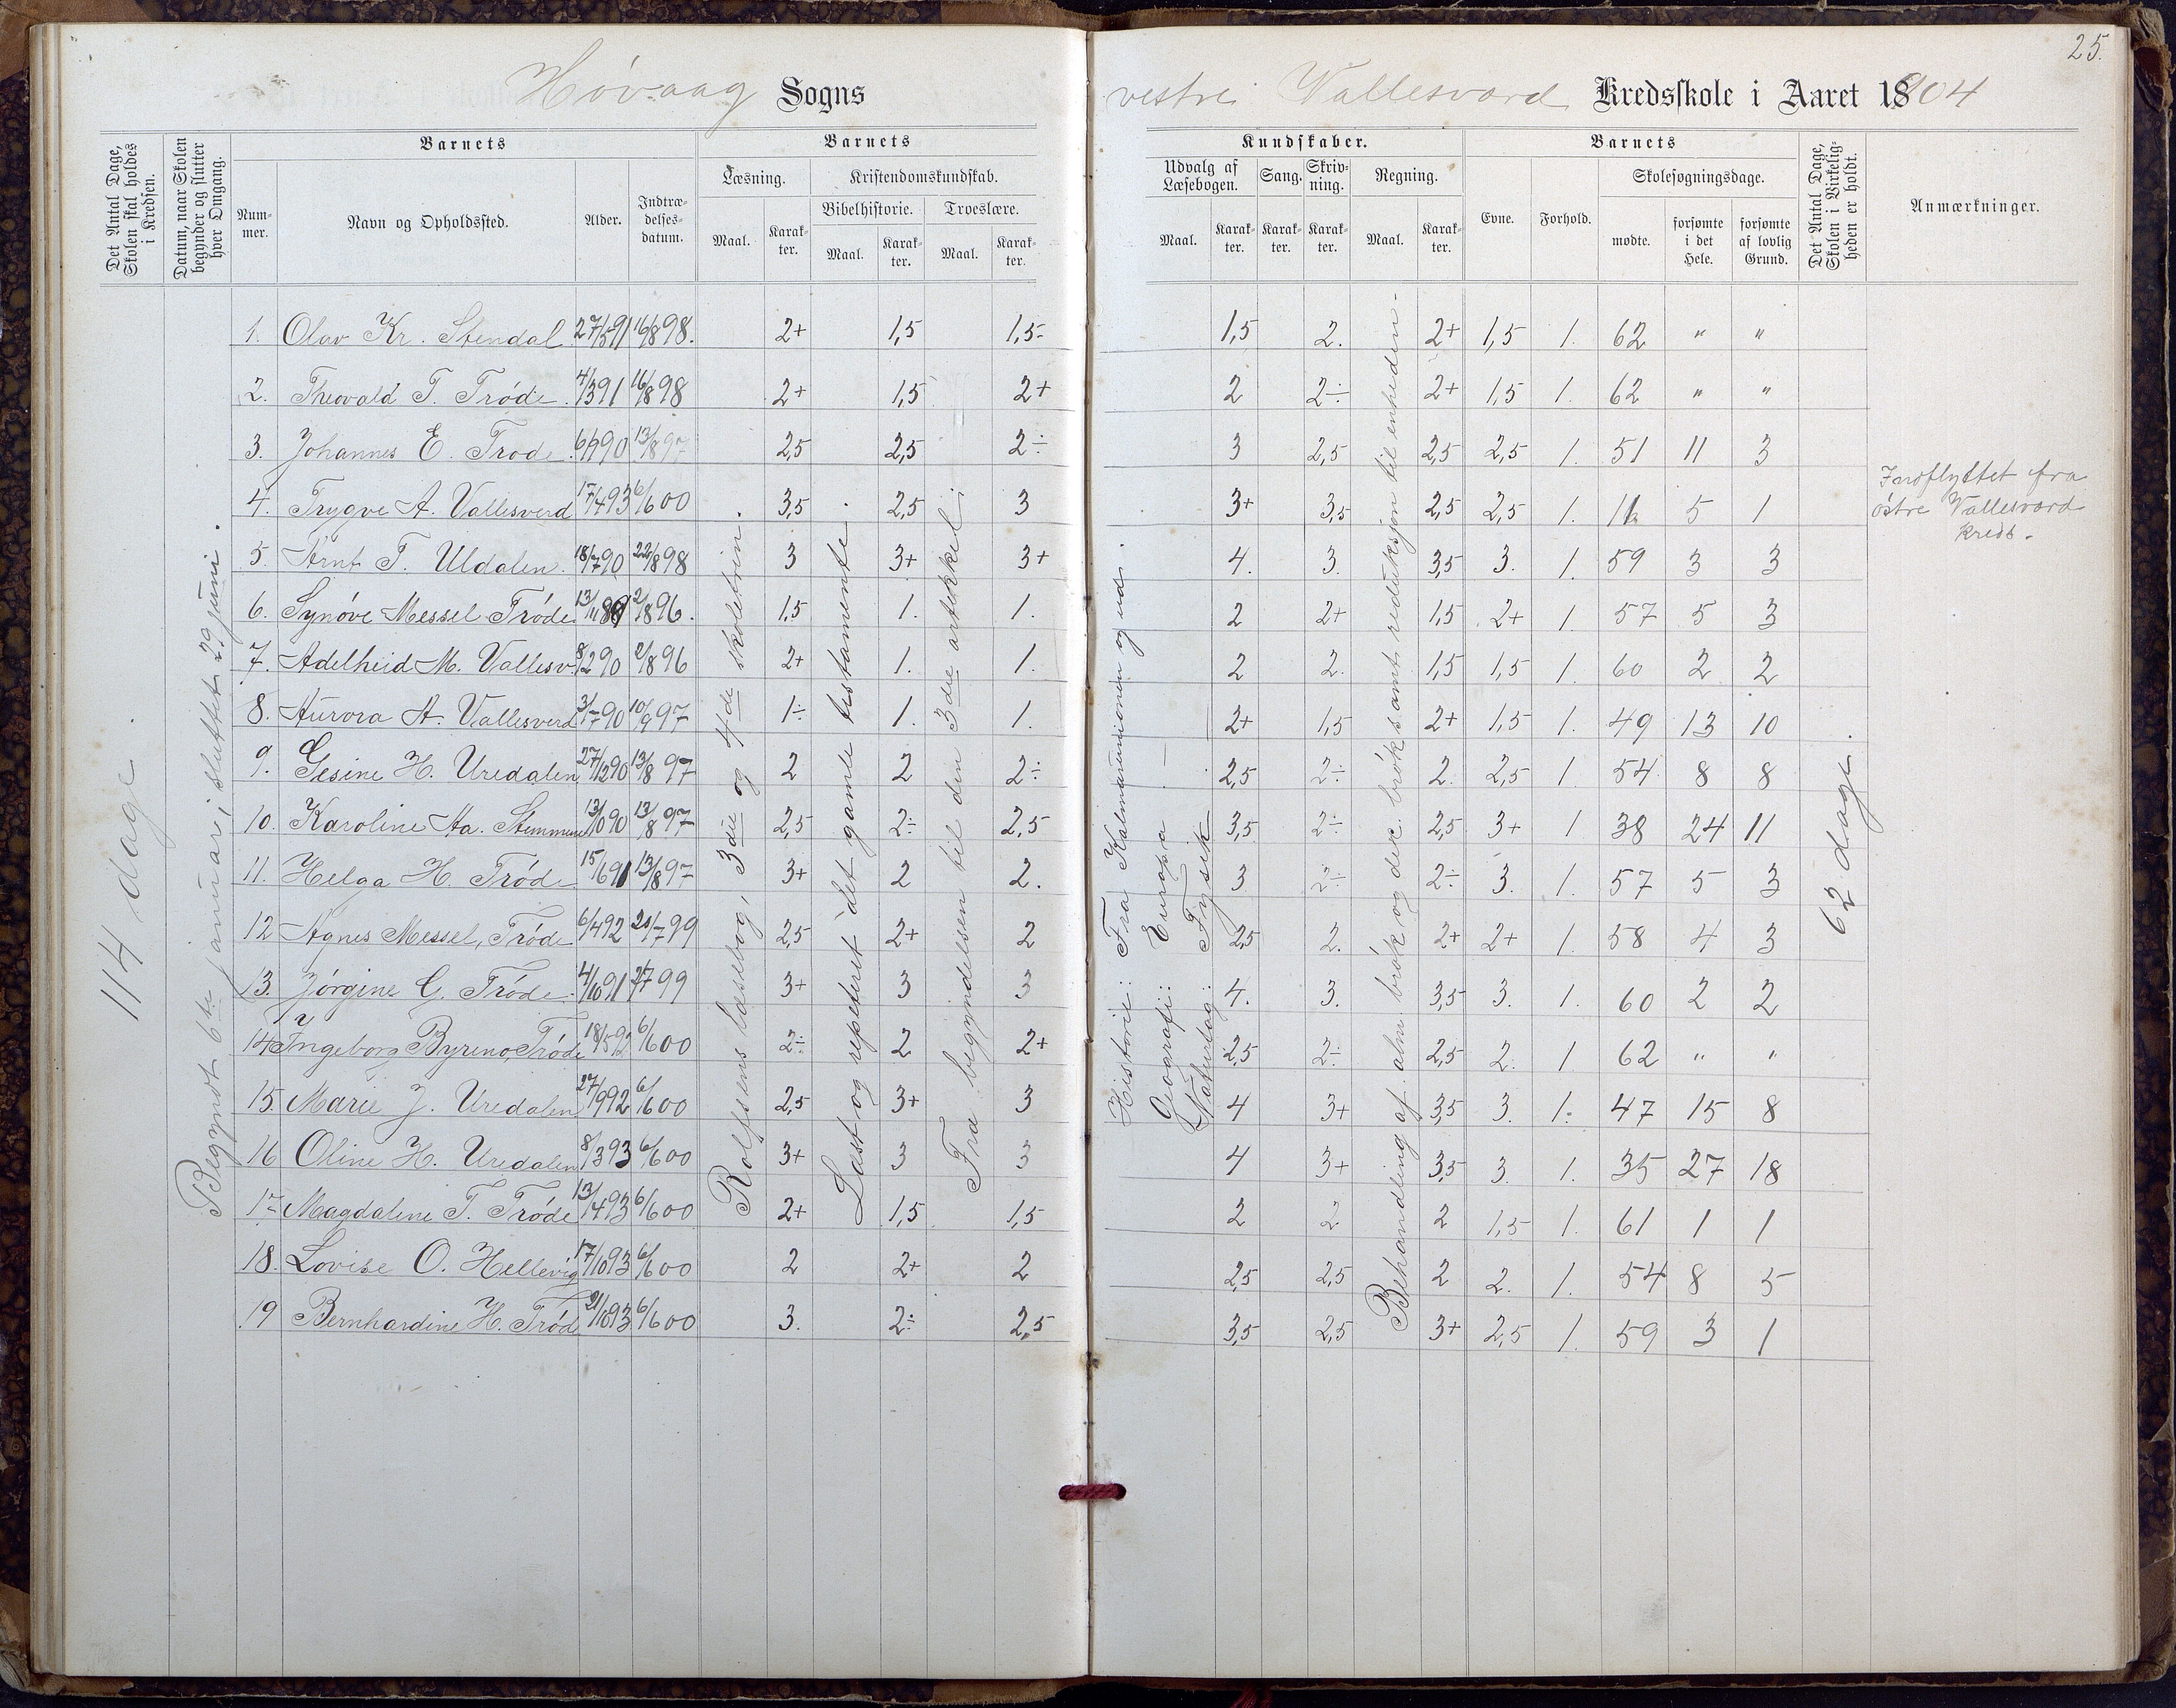 25.
Høvaag Sogns
vestre Vallesverd Kredsskole i Aaret 1904
Det Antal Dage, Skolen skal holdes i Kredsen.
Datum, naar Skolen begynder og slutter hver Omgang.
Barnets
Nummer.
Navn og Opholdssted.
Alder.
Indtrædelsesdatum.
Barnets
Læsning.
Kristendomskundskab.
Maal.
Karakter.
Bibelhistorie.
Troeslære.
Maal.
Karakter.
Maal.
Karakter.
Kundskaber.
Udvalg af Læsebogen.
Sang.
Skrivning.
Regning.
Maal.
Karakter.
Karakter.
Karakter.
Maal.
Karakter.
Barnets
Evne.
Forhold.
Skolesøgningsdage.
mødte.
forsømte i det Hele.
forsømte af lovlig Grund.
Det Antal Dage, Skolen i Virkeligheden er holdt.
Anmærkninger.
114 dage.
Begyndt 6te januar; sluttet 29 juni.
Rolfsens læsebog, 3die og 4de skoletrin.
Læst og repeteret det gamle testamente.
Fra begyndelsen til den 3die artikkel.
Historie: Fra Kalmarunionen og ud.
Geografi: Europa —
Naturfag: Fysik
Behandling af alm. brøk og dec. brøk samt reduksjon til enheden.
62 dage.
1. Olav Kr. Stendal 27/5 91 16/8 98. 2+ 1,5 1,5 1,5 2. 2+ 1,5 1. 62 " "
2. Theovald T. Trøde. 4/3 91 16/8 98 2+ 1,5 2+ 2 2÷ 2+ 1,5 1. 62 " "
3. Johannes E. Trøde. 6/9 90 13/8 97 2,5 2,5 2÷ 3 2,5 2,5 2,5 1. 51 11 3
4. Trygve A. Vallesverd 17/4 93 6/6 00 3,5 2,5 3 3+ 3,5 2,5 2,5 1. 11 5 1 Indflyttet fra østre Vallesverd kreds.
5. Arnt T. Uldalen. 18/7 90 22/8 98 3 3+ 3+ 4. 3. 3,5 3. 1. 59 3 3
6. Synøve Messel Trøde 13/11 89 2/8 96. 1,5 1. 1. 2 2+ 1,5 2+ 1. 57 5 3
7. Adelheid M. Vallesv. 8/2 90 2/8 96 2+ 1. 1. 2 2. 1,5 1,5 1. 60 2 2
8. Aurora A. Vallesverd 31/7 90 10/9 97 1÷ 1. 1. 2+ 1,5 2+ 1,5 1. 49 13 10
9. Gesine H. Uredalen 27/12 90 13/8 97 2 2 2÷ 2,5 2÷ 2. 2,5 1 54 8 8
10. Karoline Aa. Stemmene 13/10 90 13/8 97 2,5 2÷ 2,5 3,5 2÷ 2,5 3+ 1 38 24 11
11. Helga H. Trøde 15/6 91 13/8 97 3+ 2 2. 3 2÷ 2÷ 3. 1. 57 5 3
12 Agnes Messel, Trøde 6/4 92 21/7 99 2,5 2+ 2 2,5 2. 2+ 2+ 1. 58 4 3
13. Jørgine G. Trøde. 4/10 91 21/7 99 3+ 3 3 4. 3. 3,5 3. 1. 60 2 2
14 Ingeborg Byreno, Trøde 18/5 92 6/6 00 2÷ 2 2+ 2,5 2÷ 2,5 2. 1 62 " "
15. Marie J. Uredalen 27/9 92 6/6 00 2,5 3+ 3 4 3+ 3,5 3. 1. 47 15 8
16 Oline H. Uredalen 8/3 93 6/6 00 3+ 3 3 4 3+ 3,5 3. 1. 35 27 18
17 Magdaline T. Trøde 13/4 93 6/6 00 2+ 1,5 1,5 2 2 2 1,5 1. 61 1 1
18. Lovise O. Hellevig 17/10 93 6/6 00 2 2+ 2 2,5 2,5 2 2. 1. 54 8 5
19 Bernhardine H. Trøde 21/10 93 6/6 00 3. 2÷ 2,5 3,5 2,5 3+ 2,5 1. 59 3 1